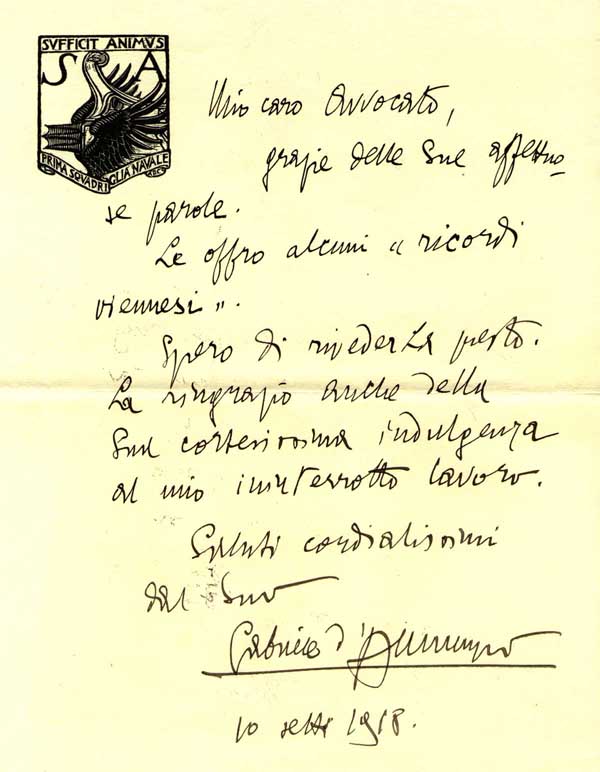 SVFFICIT ANIMVS
S A
PRIMA SQVADRIGLIA NAVALE
Mio caro Avvocato,
grazie delle Sue affettuo-
se parole.
Le offro alcuni « ricordi
viennesi ».
Spero di rivederLa presto.
La ringrazio anche della
Sua cortesissima indulgenza
al mio ininterrotto lavoro.
Saluti cordialissimi
dal Suo
Gabriele d'Annunzio
10 sett: 1918.